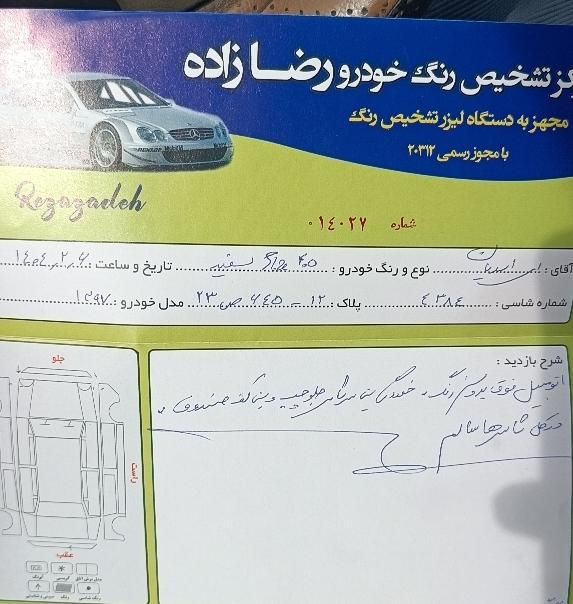 کز تشخیص رنگ خودرو رضا زاده
مجهز به دستگاه لیزر تشخیص رنگ
با مجوز رسمی ۲۰۳۱۲
Rezazadeh
شماره ۰۱۴۰۲۷
آقای : نوع و رنگ خودرو : ۴۰۵ سفید تاریخ و ساعت : ۱۴۰۴,۲,۶
شماره شاسی : ۴۳۸۴ پلاک : ۱۲ – ۶۴۵ ص ۲۳ مدل خودرو : ۱۳۹۷
شرح بازدید :
اتومبیل فوق بدون رنگ و خوردگی جلو چپ و کف صندوق
شاسی ها سالم
جلو
راست
عقب